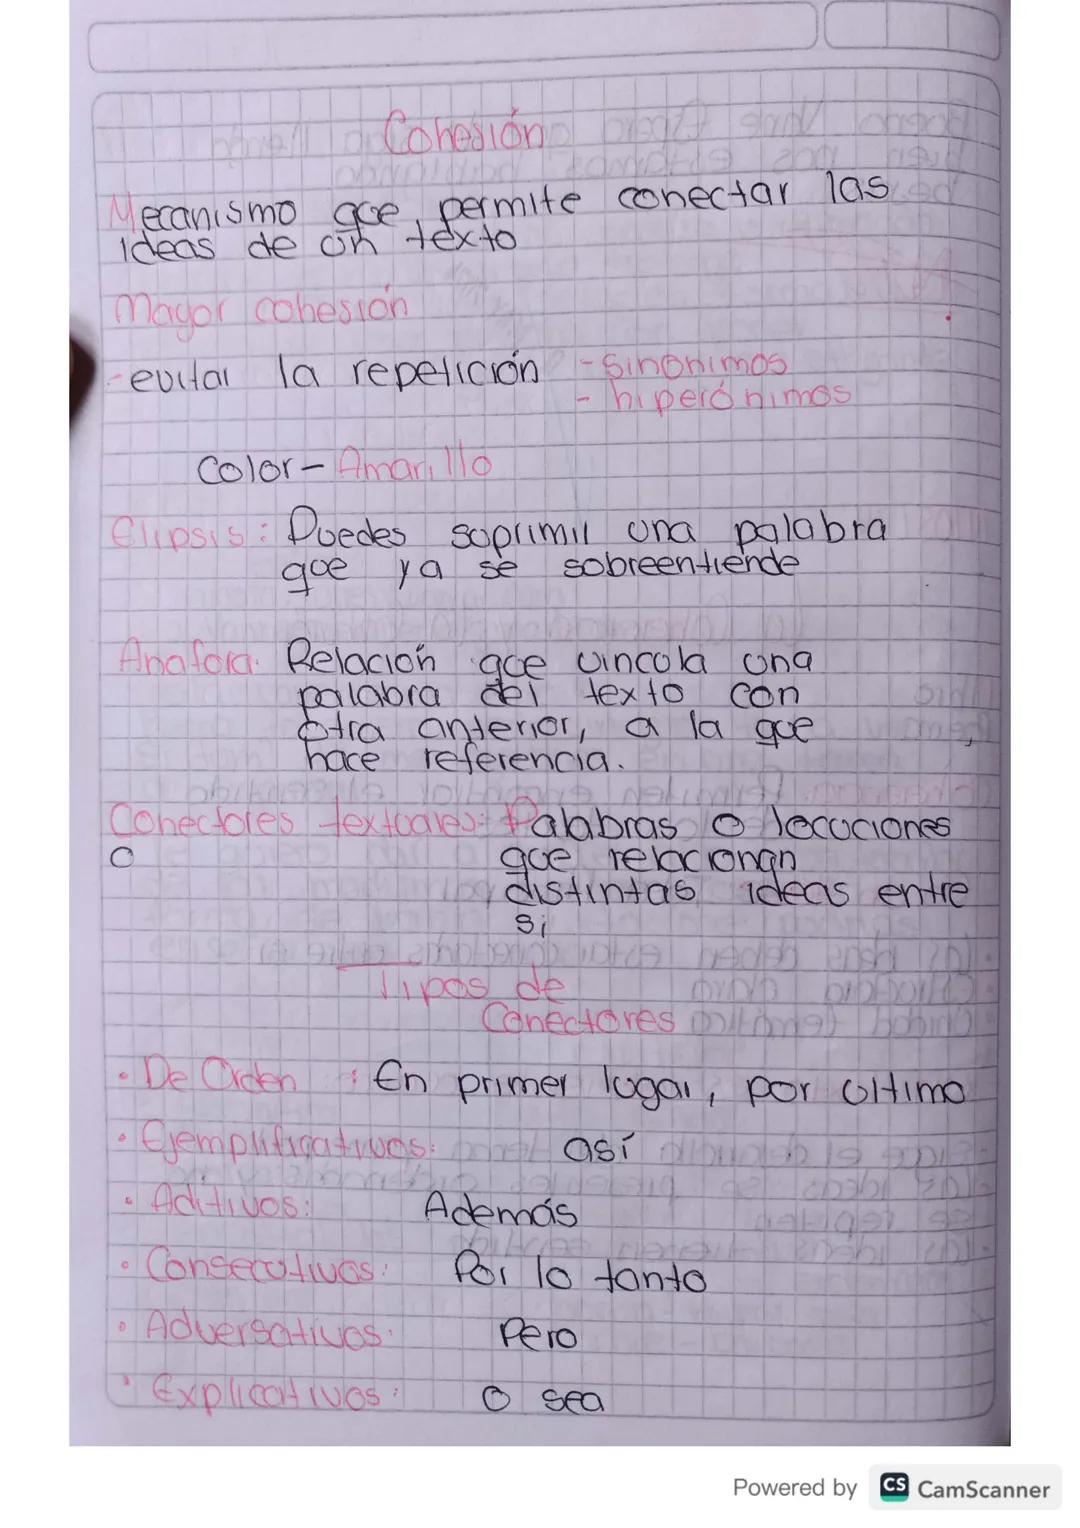 Cohesión
Mecanismo que permite conectar las
ideas de un texto
Mayor cohesión
-evitar la repetición - sinonimos
- hiperónimos
Color- Amarillo
Elipsis: Puedes suprimir una palabra
que ya se sobreentiende
Anafora: Relación que vincula una
palabra del texto con
otra anterior, a la que
hace referencia.
Conectores textuales: Palabras o locuciones
que relacionan
distintas ideas entre
si
Tipos de
Conectores
• De Orden : En primer lugar, por ultimo
• Ejemplificativos: así
• Aditivos: Además
• Consecutivos: Por lo tanto
• Adversativos: Pero
• Explicativos: O sea
Powered by CS CamScanner